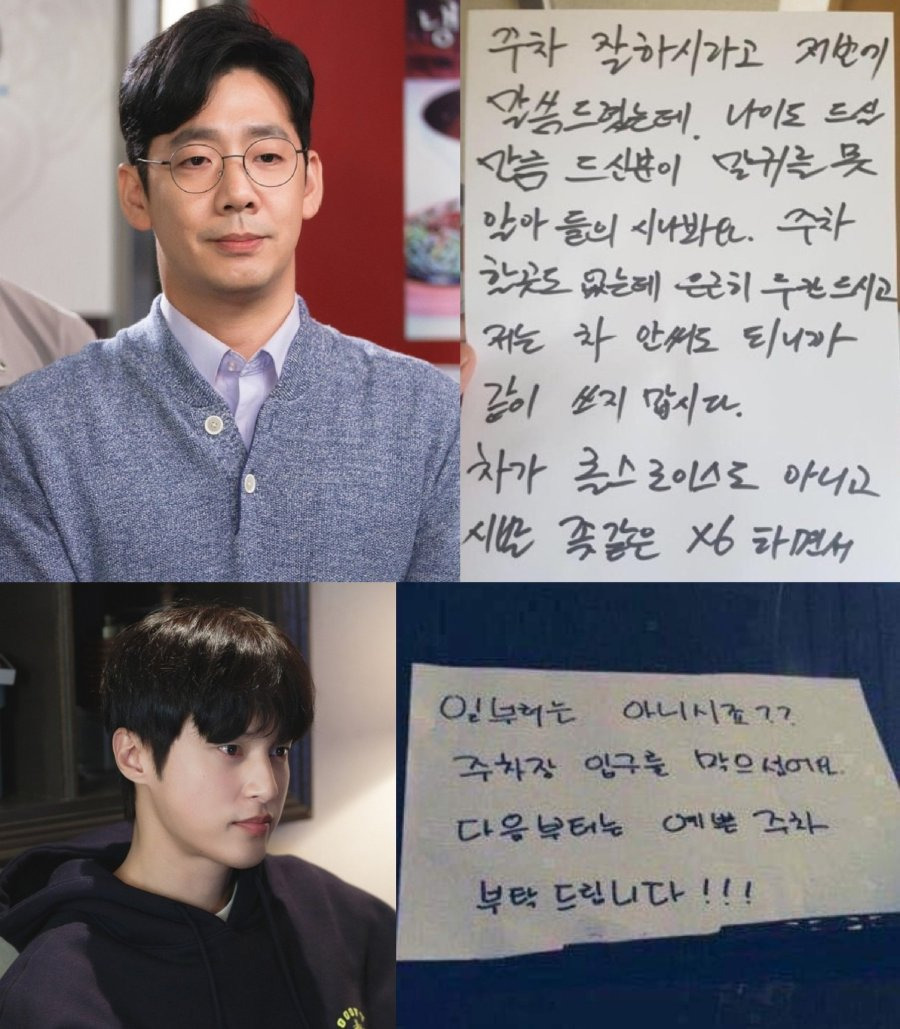 냉
주차 잘하시라고 저번에
말씀드렸는데, 나이도 드실
만큼 드신분이 말귀를 못
알아 들으시나봐요. 주차
할곳도 없는데 은근히 두칸드시고
저는 차 안써도 되니까
같이 쓰지 맙시다.
차가 롤스로이스도 아니고
시발 좆같은 X6 타면서
일부러는 아니시죠??
주차장 입구를 막으셨어요.
다음부터는 예쁜 주차
부탁드립니다!!!